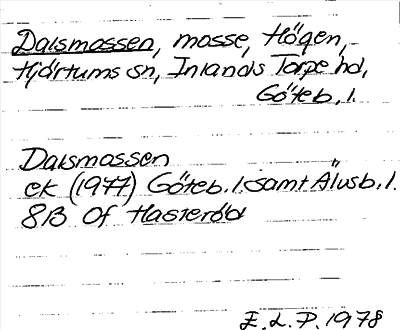 Dalsmossen, mosse, Högen,
Hjärtums sn, Inlands Torpe hd,
Göteb. l.
Dalsmossen
ek (1977) Göteb. l. samt Älvsb. l.
8B 0f Hasteröd
E. L. P. 1978